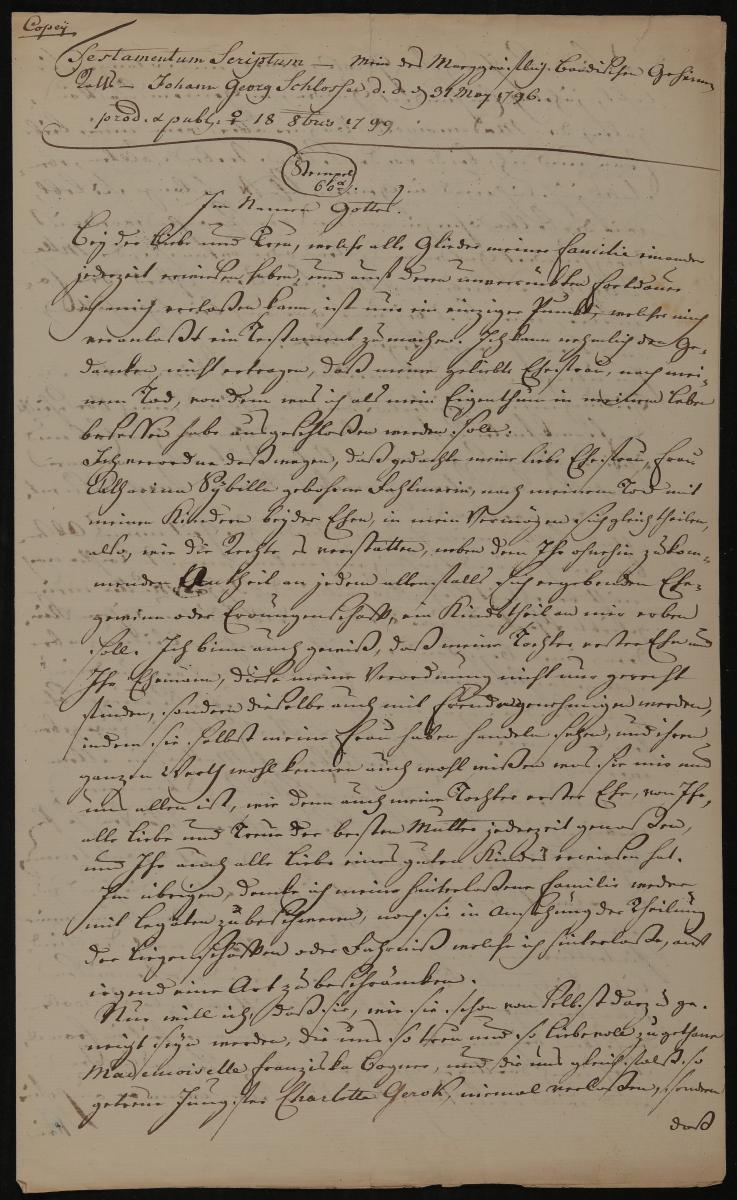 Copey
Testamentum Scriptum — mein des Marggräflich. Badischen Geheimen
Raths — Johann Georg Schlosser, d. d. 31 May 1796.
prod. & publ. 18 8bris 1799
Stempel
60
Im Namen Gottes.
Bey der Liebe und Treu, welche alle Glieder meiner Familie einander
jederzeit erwiesen haben, und auf deren unverrückten Fortdauer
ich mich verlaßen kann, ist nur ein einziger Punkt, welcher mich
veranlaßt ein Testament zu machen. Ich kann nehmlich den Ge-
danken nicht ertragen, daß meine geliebte Ehefrau, nach mei-
nem Tod, von dem was ich als mein Eigenthum in meinem Leben
beseßen habe ausgeschloßen werden solle.
Ich verordne deßwegen, daß gedachte meine liebe Ehefrau, Frau
Catharina Sybilla gebohrne Fahlmerin, nach meinem Tod mit
meinen Kindern beyder Ehen, in mein Vermögen sich gleich theilen,
also, wie die Rechte es verstatten, neben dem Ihr ohnehin zukom-
menden Antheil an jedem allenfalls sich ergebenden Ehe-
gewinn oder Errungenschaft, ein Kindstheil an mir erben
soll. Ich binn auch gewiß, daß meine Tochter erster Ehe und
Ihr Ehemann, diese meine Verordnung nicht nur gerecht
finden, sondern dieselbe auch mit Freuden genehmigen werden,
indem sie selbst meine Frau haben handeln sehen, und ihren
ganzen Werth wohl kennen auch wohl wißen was sie mir und
uns allen ist, wie denn auch meine Tochter erster Ehe, von Ihr,
alle Liebe und Treue der besten Mutter jederzeit genoßen,
und Ihr auch alle Liebe eines guten Kindes erwiesen hat.
Im übrigen, denke ich meine hinterlaßene Familie weder
mit Legaten zu beschweren, noch sie in Ansehung der Theilung
der Liegenschafften oder Fahrniß welche ich hinterlaße, auf
irgend eine Art zu beschränken.
Nur will ich, daß sie, wie sie schon von selbst darzu ge-
neigt seyn werden, die uns so treu und so liebevoll zugethane
Mademoiselle Franziska Cogner, und die uns gleichfalls so
getreue Jungfer Charlotte Gerok, niemal verlaßen, sondern
daß